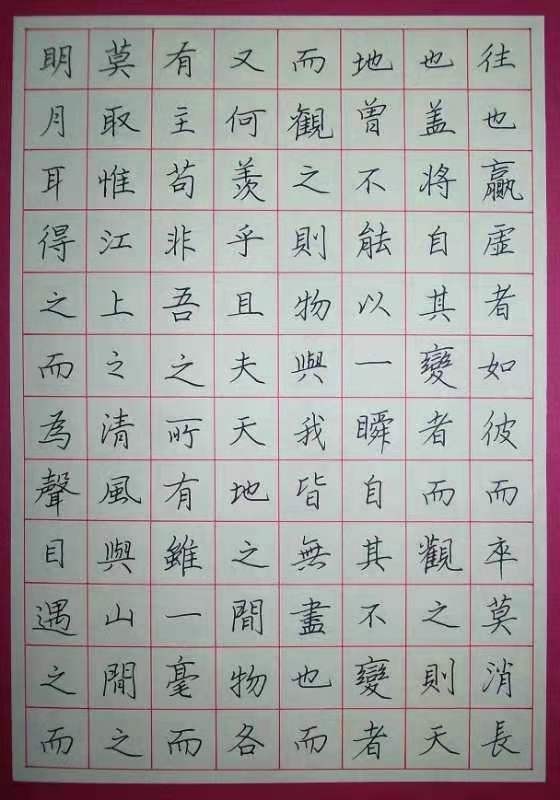 往也贏虛者如彼而卒莫消長
也盖將自其變者而觀之則天
地曾不能以一瞬自其不變者
而觀之則物與我皆無盡也而
又何羨乎且夫天地之間物各
有主苟非吾之所有雖一毫而
莫取惟江上之清風與山間之
明月耳得之而為聲目遇之而